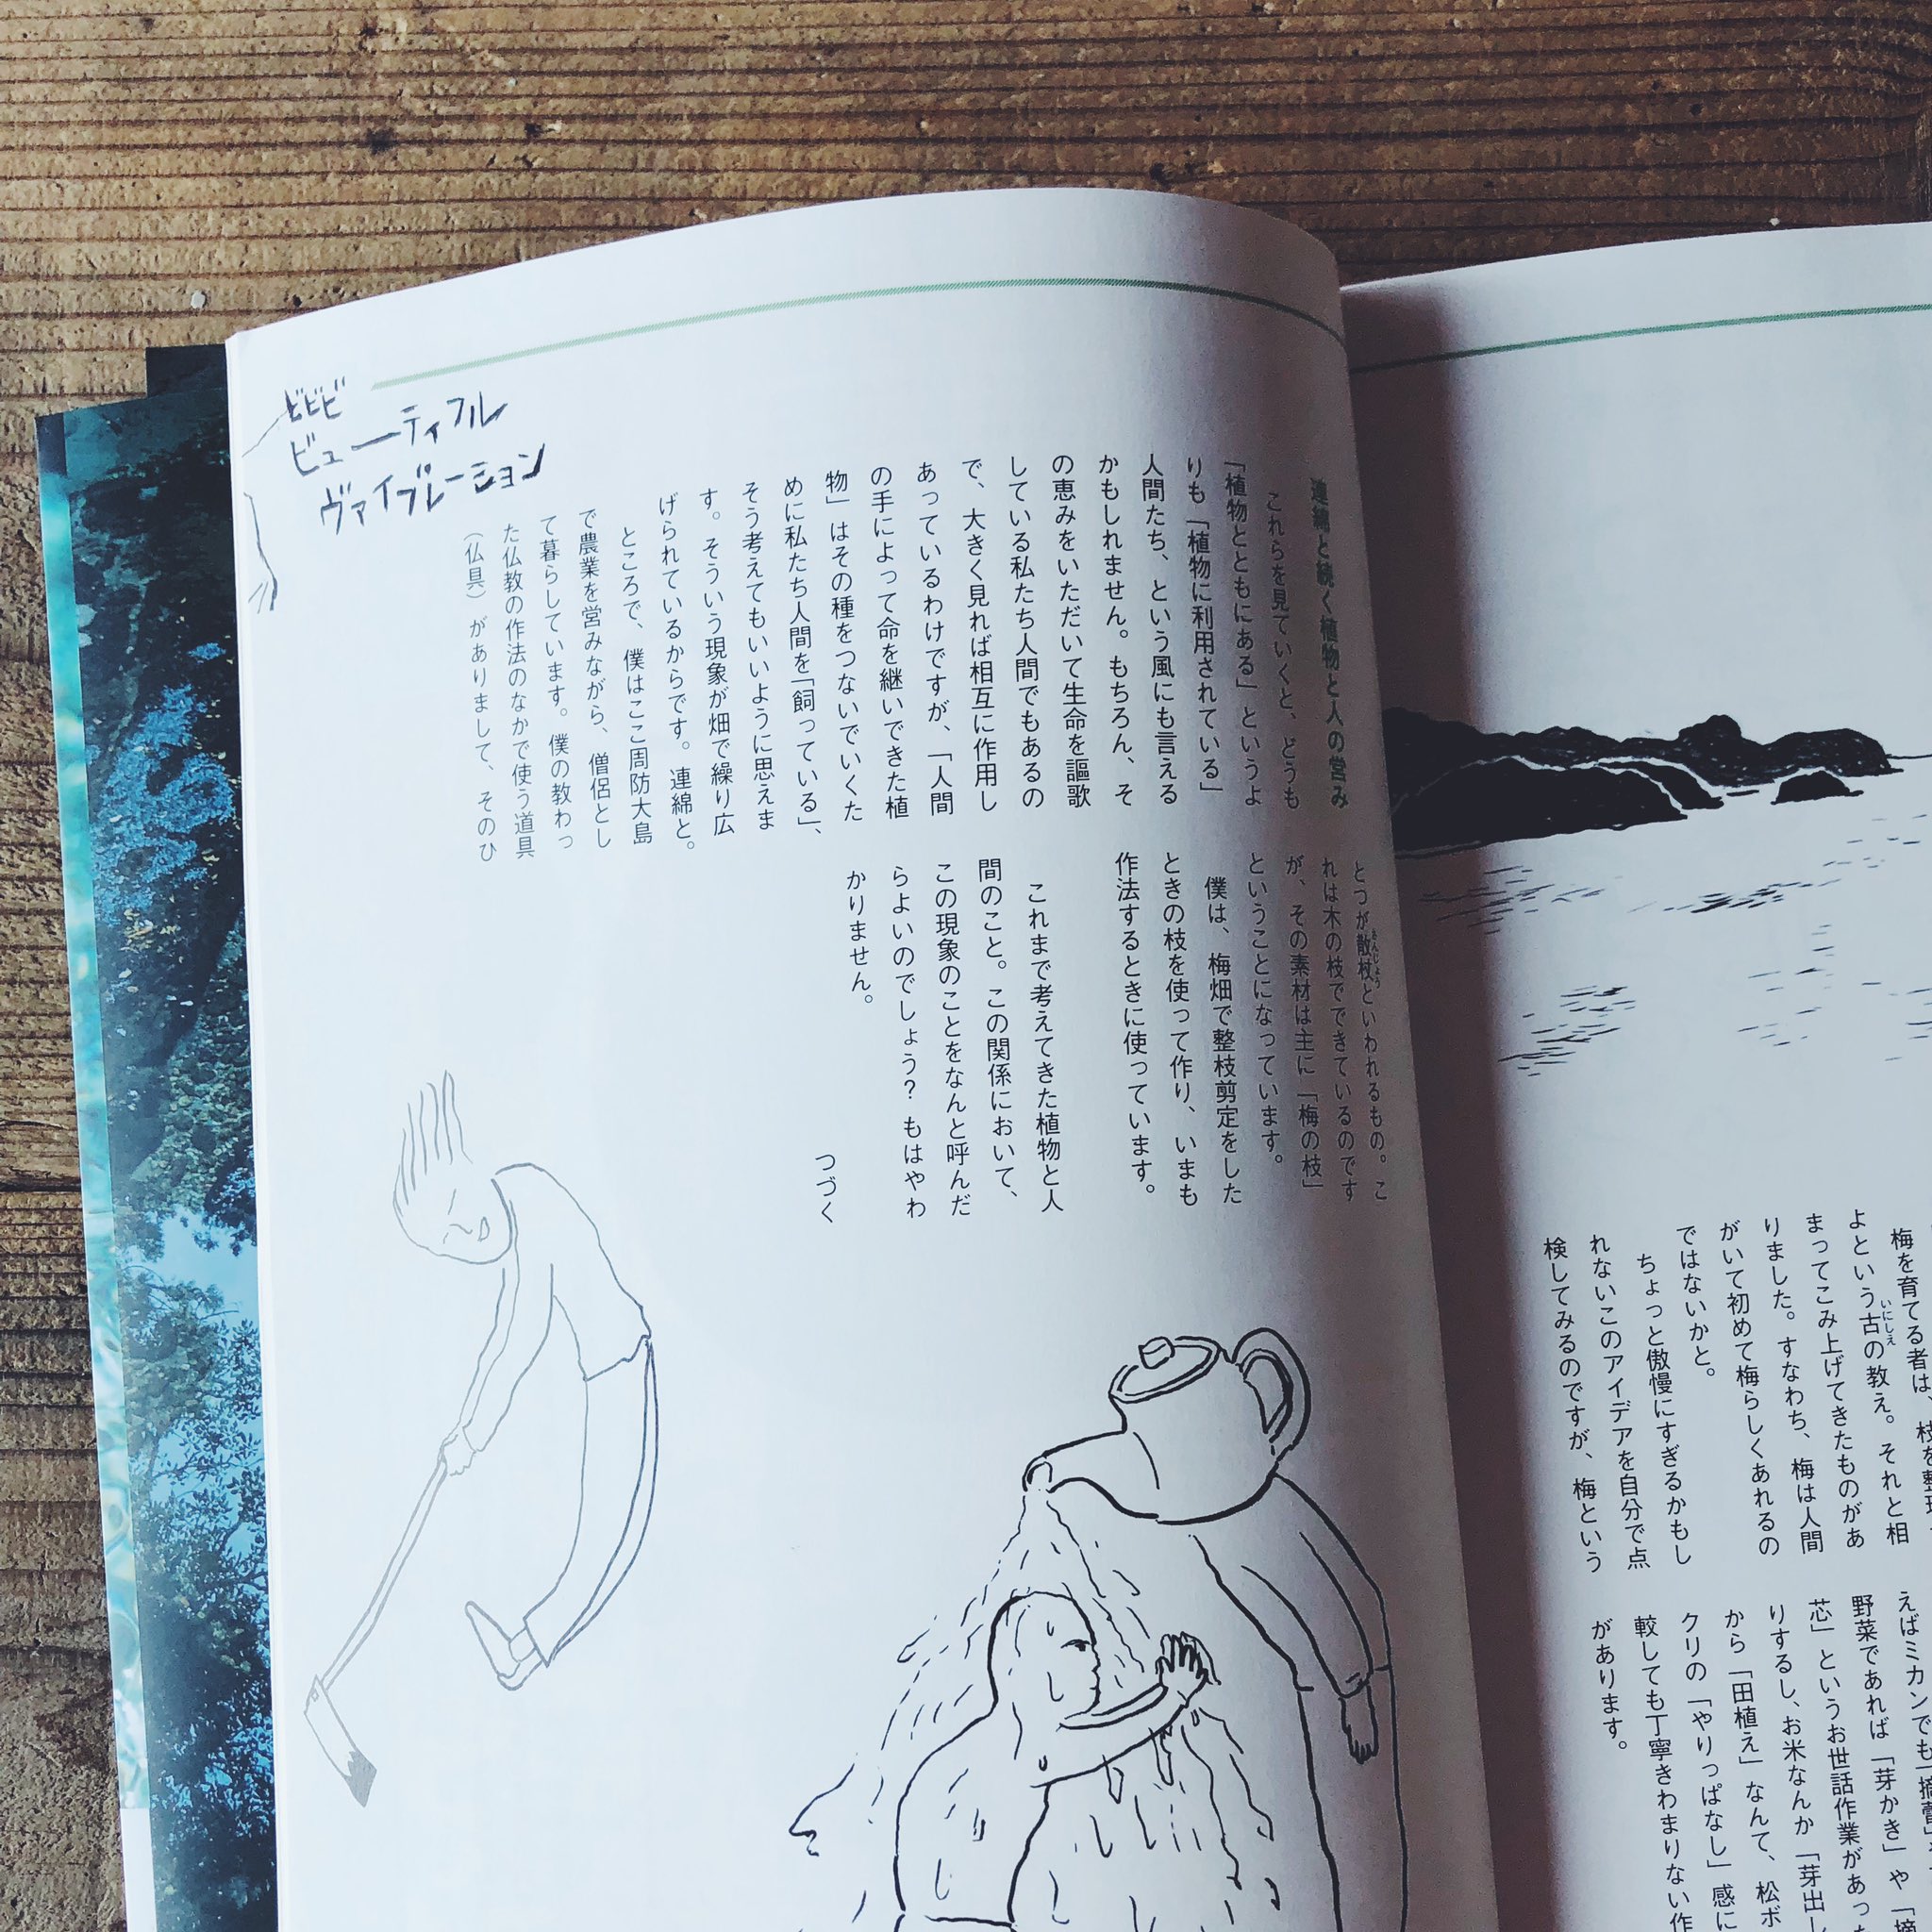 梅を育てる者は、枝を整
よという古の教え。それと相
いにしえ
まってこみ上げてきたものがあ
りました。すなわち、梅は人間
がいて初めて梅らしくあれるの
ではないかと。
ちょっと傲慢にすぎるかもし
れないこのアイデアを自分で点
検してみるのですが、梅という
えばミカンでも「摘蕾
野菜であれば「芽かき」や「摘
芯」というお世話作業があっ
りするし、お米なんか「芽出し
から「田植え」なんて、松ボ
クリの「やりっぱなし」感に
較しても丁寧きわまりない作
があります。
連綿と続く植物と人の営み
これらを見ていくと、どうも
「植物とともにある」というよ
りも「植物に利用されている」
人間たち、という風にも言える
かもしれません。もちろん、そ
の恵みをいただいて生命を謳歌
している私たち人間でもあるの
で、大きく見れば相互に作用し
あっているわけですが、「人間
の手によって命を継いできた植
物」はその種をつないでいくた
めに私たち人間を「飼っている」、
そう考えてもいいように思えま
す。そういう現象が畑で繰り広
げられているからです。連綿と。
ところで、僕はここ周防大島
で農業を営みながら、僧侶とし
て暮らしています。僕の教わっ
た仏教の作法のなかで使う道具
（仏具）がありまして、そのひ
とつが散杖といわれるもの。こ
れは木の枝でできているのです
が、その素材は主に「梅の枝」
ということになっています。
僕は、梅畑で整枝剪定をした
ときの枝を使って作り、いまも
作法するときに使っています。
これまで考えてきた植物と人
間のこと。この関係において、
この現象のことをなんと呼んだ
らよいのでしょう？もはやわ
かりません。
つづく
ビビビ
ビューティフル
ヴァイブレーション